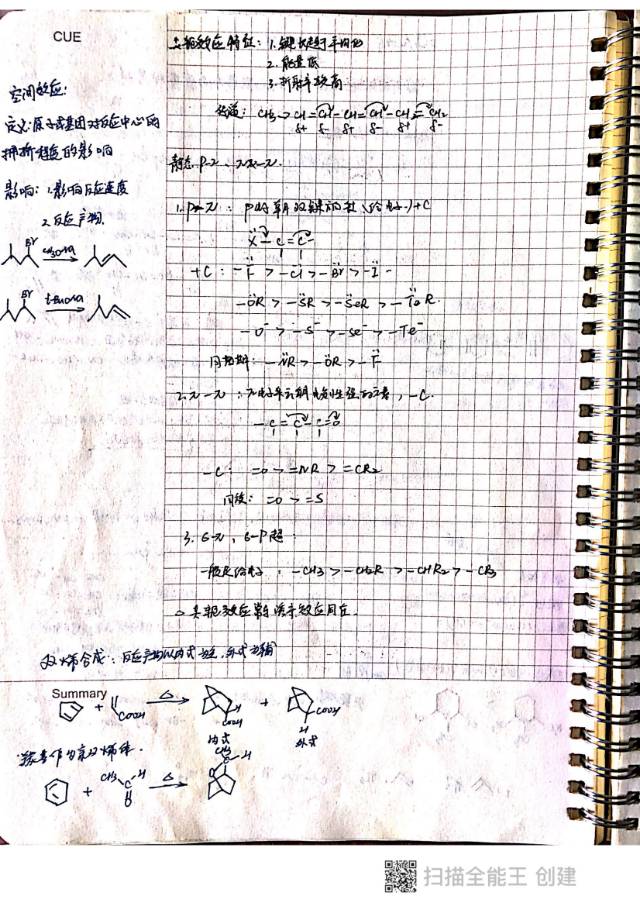 CUE
空间效应:
定义:原子或基团对反应中心的
拥挤程度的影响
影响: 1.影响反应速度
2.反应产物
Br
CH3ONa
Br
t-BuONa
共轭效应特征: 1.键长趋于平均化
2.能量低
3.折射率较高
传递: CH3→CH=CH-CH=CH-CH=CH2
δ+ δ- δ+ δ- δ+ δ-
静态 p-π、π-π.
1. p-π: p电子朝双键方向(给电子)+C
X-C=C-
+C: -F > -Cl > -Br > -I
-OR > -SR > -SeR > -TeR
-O- > -S- > -Se- > -Te-
同周期: -NR > -OR > -F
2. π-π: π电子 电负性强的元素, -C.
-C=C-C=O
-C: =O > =NR > =CR2
同族: =O > =S
3. σ-π, σ-p超:
一般是给电子, -CH3 > -CH2R > -CHR2 > -CR3
共轭效应 诱导效应
双烯合成: 反应产物以内式为主, 外式为辅
Summary
+ COOH △ H COOH + COOH H
内式 外式
苯 作为 双烯体.
+ CH3 C H O △ CH3 C-H O
扫描全能王 创建